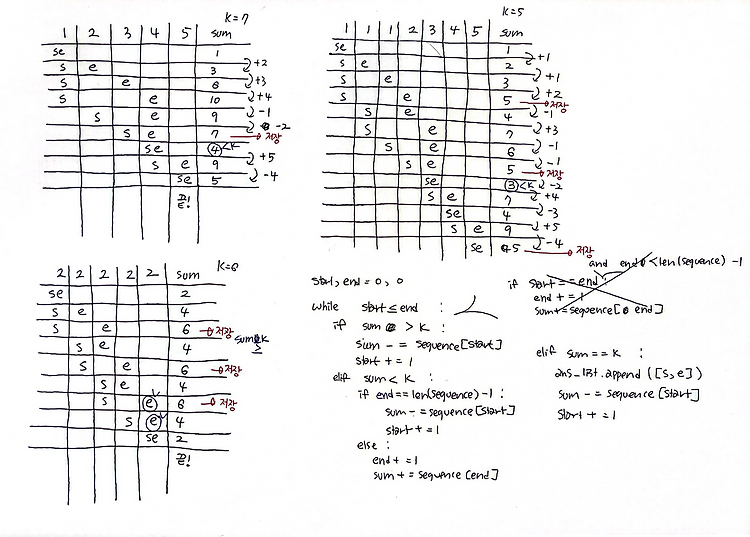 K=7
1 2 3 4 5 sum
se 1
s e 3 +2
s e 6 +3
s e 10 +4
s e 9 -1
s e 7 -2 저장
se ④<K
s e 9 +5
se 5 -4
끝!
K=5
1 1 1 2 3 4 5 sum
se 1
s e 2 +1
s e 3 +1
s e 5 +2 저장
s e 4 -1
s e 7 +3
s e 6 -1
s e 5 -1 저장
se ③<K -2
s e 7 +4
se 4 -3
s e 9 +5
se 5 -4 저장
K=6
2 2 2 2 2 sum
se 2
s e 4
s e 6 저장
s e 4
s e 6 저장
s e 4
s e 6 저장
s e 4
se 2
끝!
sum K
≥
start, end = 0, 0
while start ≤ end :
if sum > K :
sum -= sequence[start]
start += 1
elif sum < K :
if end == len(sequence) -1 :
sum -= sequence[start]
start += 1
else :
end += 1
sum += sequence[end]
and end < len(sequence) -1
if start == end :
end += 1
sum += sequence[end]
elif sum == K :
ans_lst.append([s,e])
sum -= sequence[start]
start += 1